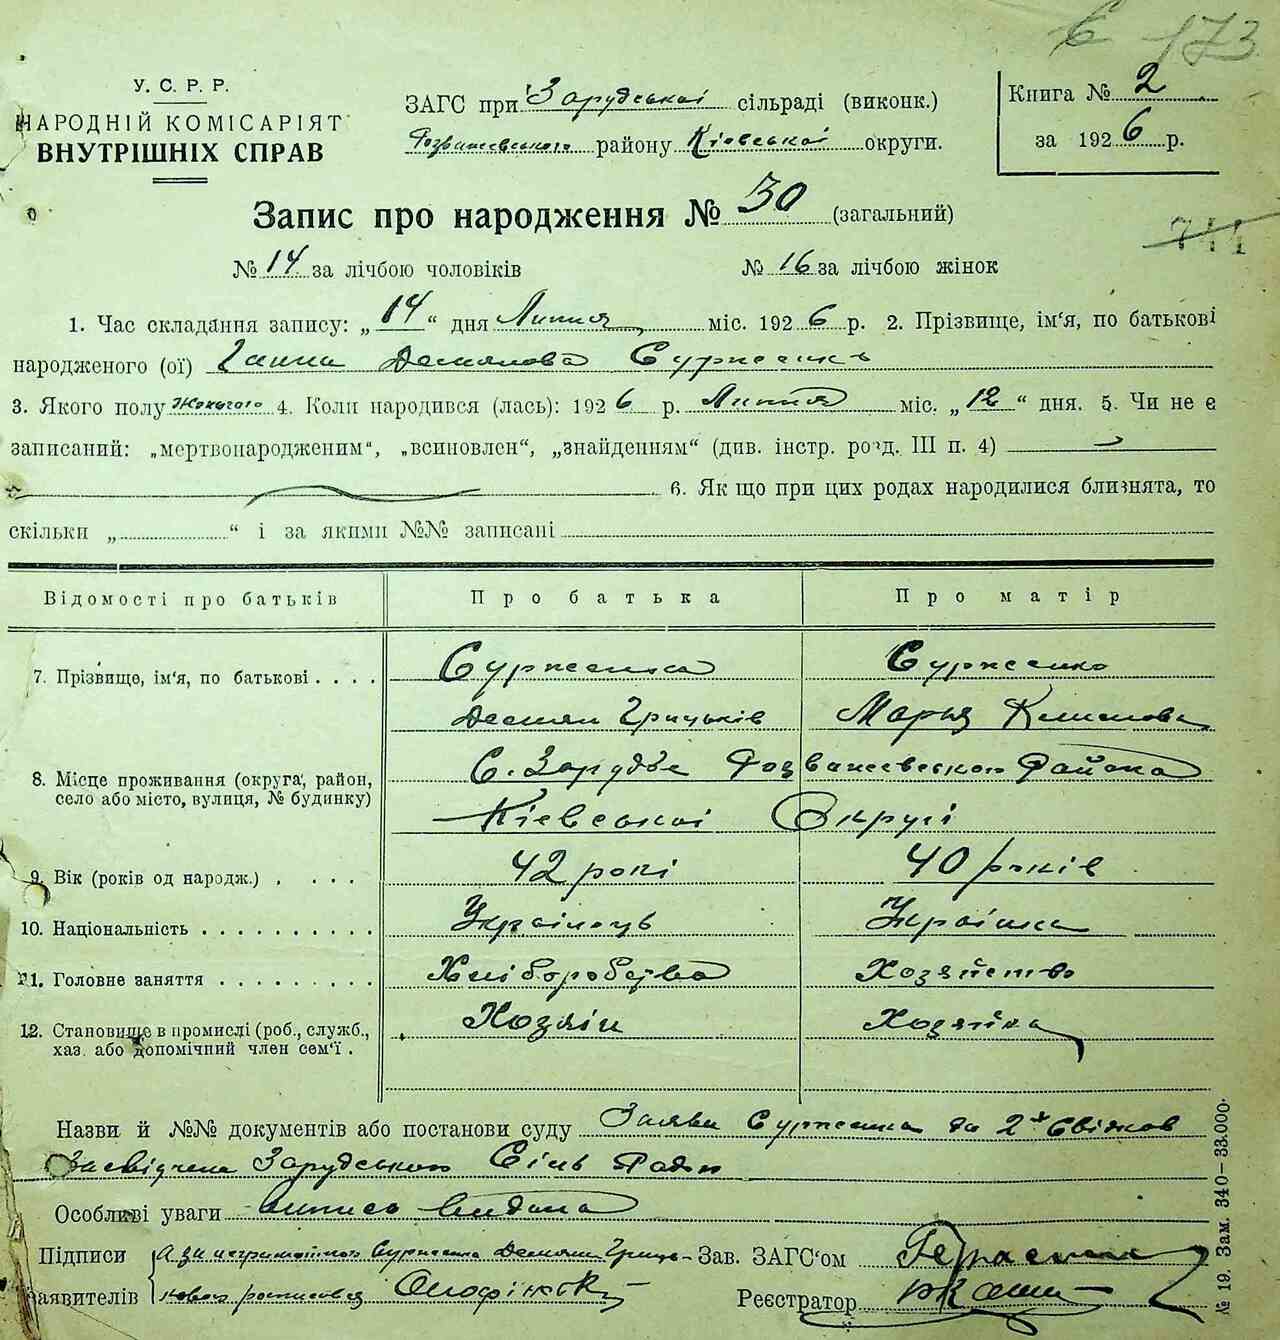 173
У. С. Р. Р.
НАРОДНІЙ КОМІСАРІЯТ
ВНУТРІШНІХ СПРАВ
ЗАГС при Зарудської сільраді (виконк.)
Розважевського району Кіевської округи.
Книга № 2
за 1926 р.
Запис про народження № 30 (загальний)
744
№ 14 за лічбою чоловіків № 16 за лічбою жінок
1. Час складання запису: „14“ дня Липня міс. 1926 р. 2. Прізвище, ім'я, по батькові
народженого (ої) Ганна Демянова Сурженко
3. Якого полу Жоночого 4. Коли народився (лась): 1926 р. Липня міс. „12“ дня. 5. Чи не є
записаний: „мертвонародженим“, „всиновлен“, „знайденням“ (див. інстр. розд. III п. 4)
6. Як що при цих родах народилися близнята, то
скільки „ “ і за якими №№ записані
Відомості про батьків Про батька Про матір
7. Прізвище, ім'я, по батькові Сурженко Сурженко
Демян Грицьків Марья Климова
8. Місце проживання (округа, район, село або місто, вулиця, № будинку) С. Заруддє Розважевського Района
Кіевської Округі
9. Вік (років од народж.) 42 рокі 40 років
10. Національність Українець Українка
11. Головне заняття Хліборобство Хозяйство
12. Становище в промислі (роб., служб., хаз. або допомічний член сем'ї Хозяін Хозяйка
Назви й №№ документів або постанови суду Заява Сурженка та 2х Свідков
Засвідчена Зарудською Сіль Радою
Особливі уваги Випись видана
Підписи А за неграмотного Сурженка Демяна Гриць- Зав. ЗАГС'ом
заявителів кового росписався Реєстратор
№ 19. Зам. 340—33.000.